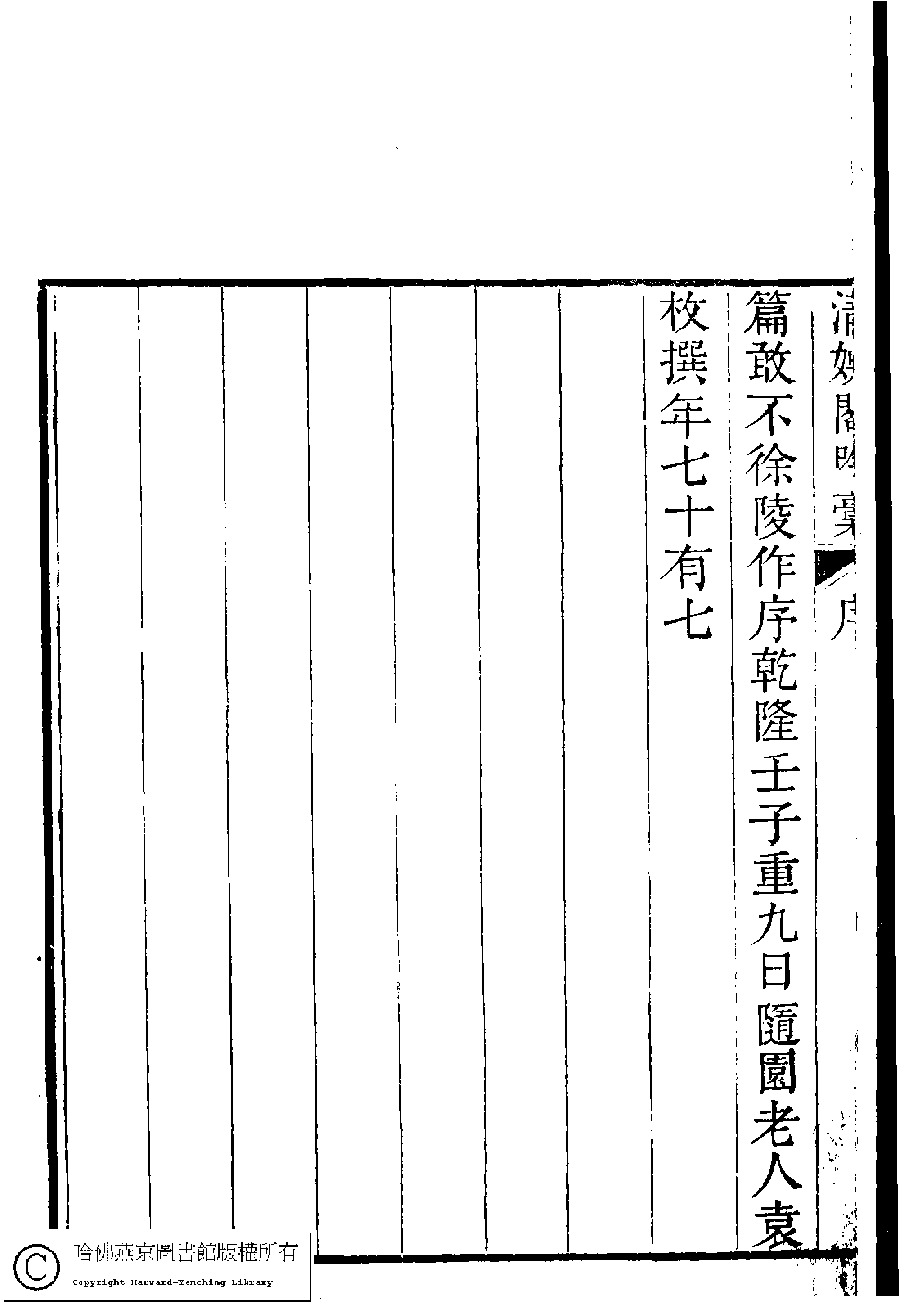 清娛閣吟稾 序
篇敢不徐陵作序乾隆壬子重九日隨園老人袁
枚撰年七十有七
哈佛燕京圖書館版權所有
Copyright Harvard-Yenching Library